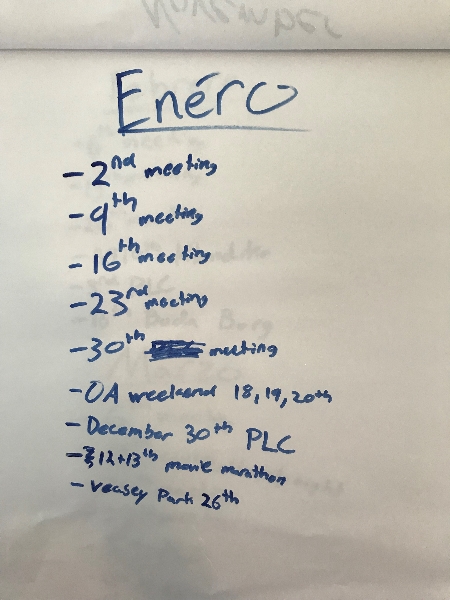 November
Enéro
- 2nd meeting
- 9th meeting
- 16th meeting
- 23rd meeting
- 30th meeting
- OA weekend 18, 19, 20th
- December 30th PLC
- 12+13th movie marathon
- Veasey Park 26th